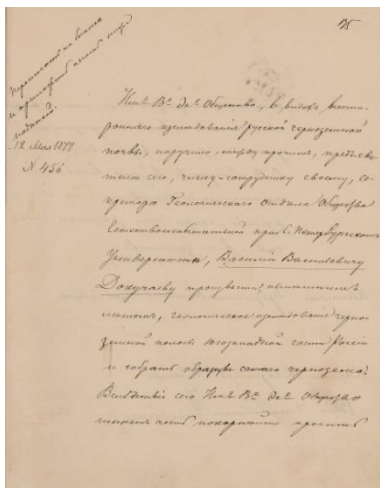 35
12 Мая 1877
№ 456
Имп. В. Эк. Общество, в видах всесто-
роннего изследованія русской черноземной
почвы, поручило, между прочим,
его, члену-сотруднику своему, се-
кретарю Геологического отдела Общества
Естествоиспытателей при С. Петербургском
Университете, Василію Васильевичу
Докучаеву произвести,
летом, геологическое изследованіе черно-
земной полосы Югозападной части Россіи
и собрать образцы самого чернозема.
Вследствіе сего Имп. В. Эк. Общество
имеет честь покорнейше просить